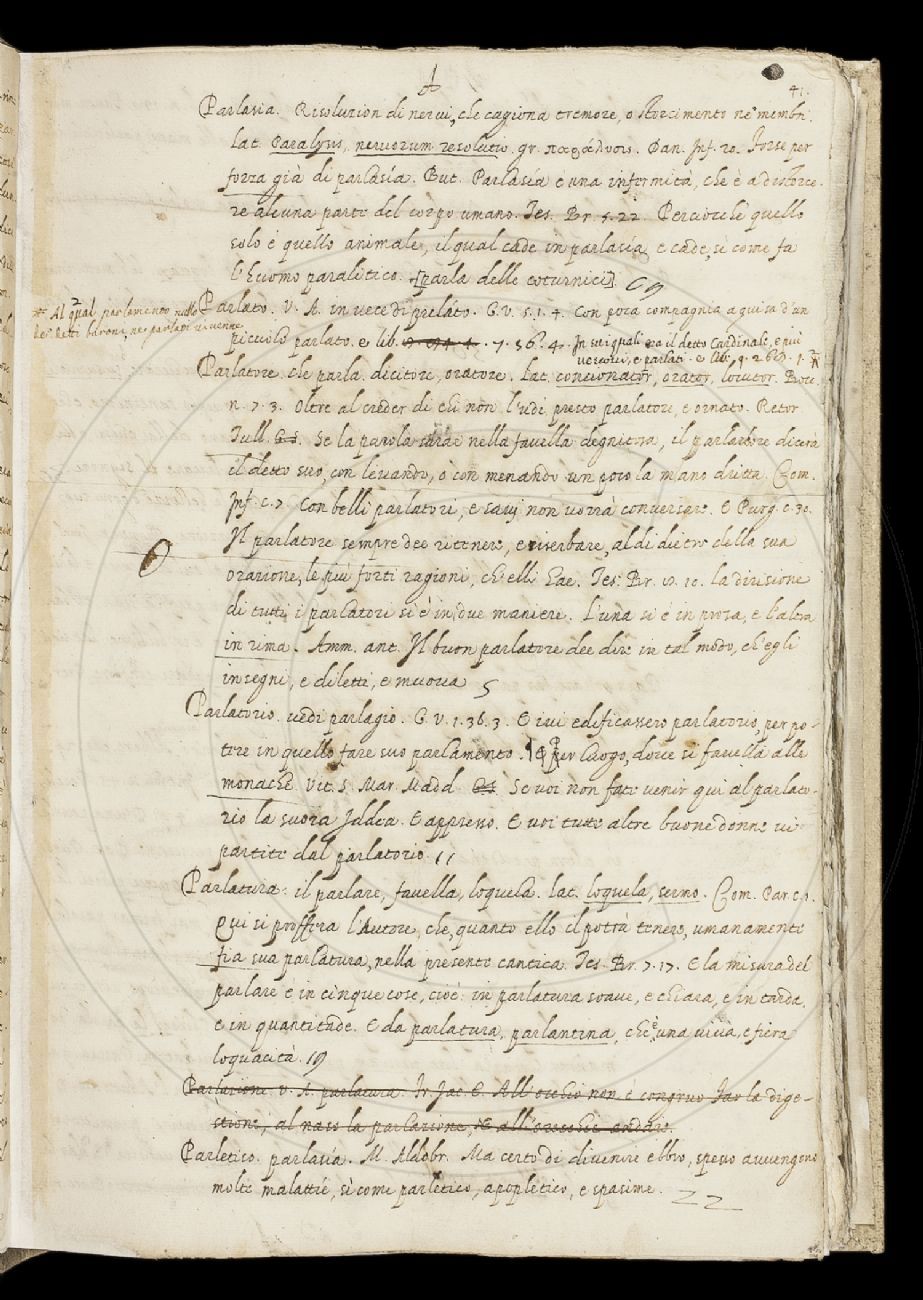 A
41.
Parlasia. Risoluzion di nerui, che cagiona tremore, o storcimento ne' membri.
Lat. Paralysis, neruorum resolutio. gr. παράλυσις. Dan. Inf. 20. Forse per
forza già di parlasia. But. Parlasia è una infermità, che è a distorce-
re alcuna parte del corpo umano. Tes. Br. 5. 22. Perciocchè quello
solo è quello animale, il qual cade in parlasia e cade, sì come fa
l'Eciomo paralitico. [parla delle coturnici]
Al qual parlamento nullo
de' detti baroni, ne parlati ui uenne
Parlato. V. A. in uece di prelato. G. V. 5. 1. 4. Con poca compagnia a guisa d'un
piccolo parlato. e lib. 7. 56. 4. In sui quali era il detto Cardinale, e più
uescoui, e parlati. e lib. 9.
Parlatore. che parla. dicitore, oratore. Lat. concionator, orator, locutor. Bocc.
n. 7. 3. Oltre al creder di chi non l'udì presto parlatore, e ornato. Retor.
Tull. Se la parola sarae nella fauella degnitosa, il parlatore dicerà
il detto suo, con leuando, o con menando un poco la mano dritta. Com.
Inf. c. 7. Con belli parlatori, e sauj non uorrà conuersare. E Purg. c. 30.
Il parlatore sempre dee ritenere, e riserbare, al di dietro della sua
orazione, le più forti ragioni, ch'elli hae. Tes. Br. 8. 10. la diuisione
di tutti i parlatori si è in due maniere. L'una si è in prosa, e l'altra
in rima. Amm. ant. Il buon parlatore dee dire in tal modo, ch'egli
insegni, e diletti, e muoua 5
Parlatorio. uedi parlagio. G. V. 1. 36. 3. E iui edificassero parlatorio, per po-
tere in quello fare suo parlamento. Per luogo, doue si fauella alle
monache. Vit. S. Mar. Madd. Se uoi non fate uenir qui al parlato-
rio la suora Iddea. E appresso. E uoi tutte altre buone donne ui
partite dal parlatorio. 11
Parlatura: il parlare, fauella, loquela. Lat. loquela, sermo. Com. Par. c. 1.
Qui si proffera l'Autore, che, quanto ello il potrà tenere, umanamente
fia sua parlatura, nella presente cantica. Tes. Br. 7. 17. E la misura del
parlare è in cinque cose, cioè: in parlatura soaue, e chiara, e in tarda,
e in quantitade. E da parlatura, parlantina, che è una uiua, e fiera
loquacità. 19
Parlazione V. A. parlatura. Fr. Jac. C. All'occhio non è congruo far la dige-
stione, al naso la parlazione, E all'orecchie andare.
Parletico. parlasia. M. Aldobr. Ma certo di diuenire ebbro, spesso auuengono
molte malattie, sì come parletico, apopletico, e spasime. 22